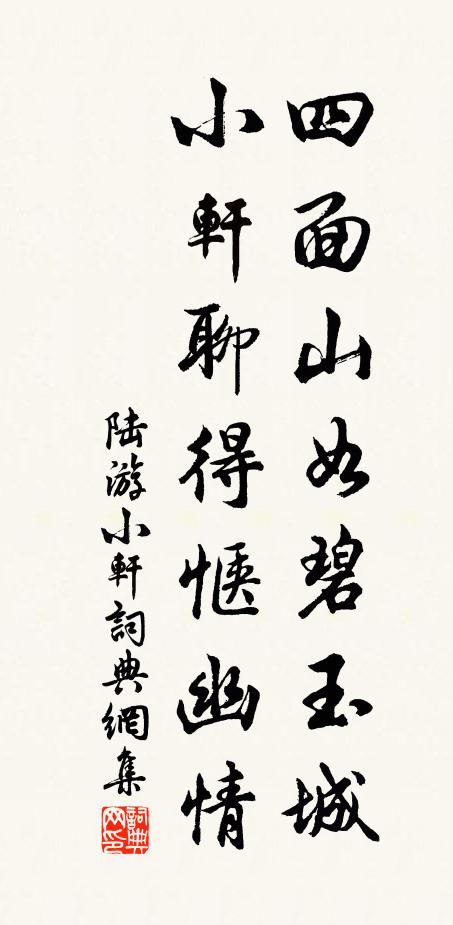 四面山如碧玉城
小軒聊得愜幽情
陆游小軒詞典網集
詞典网印